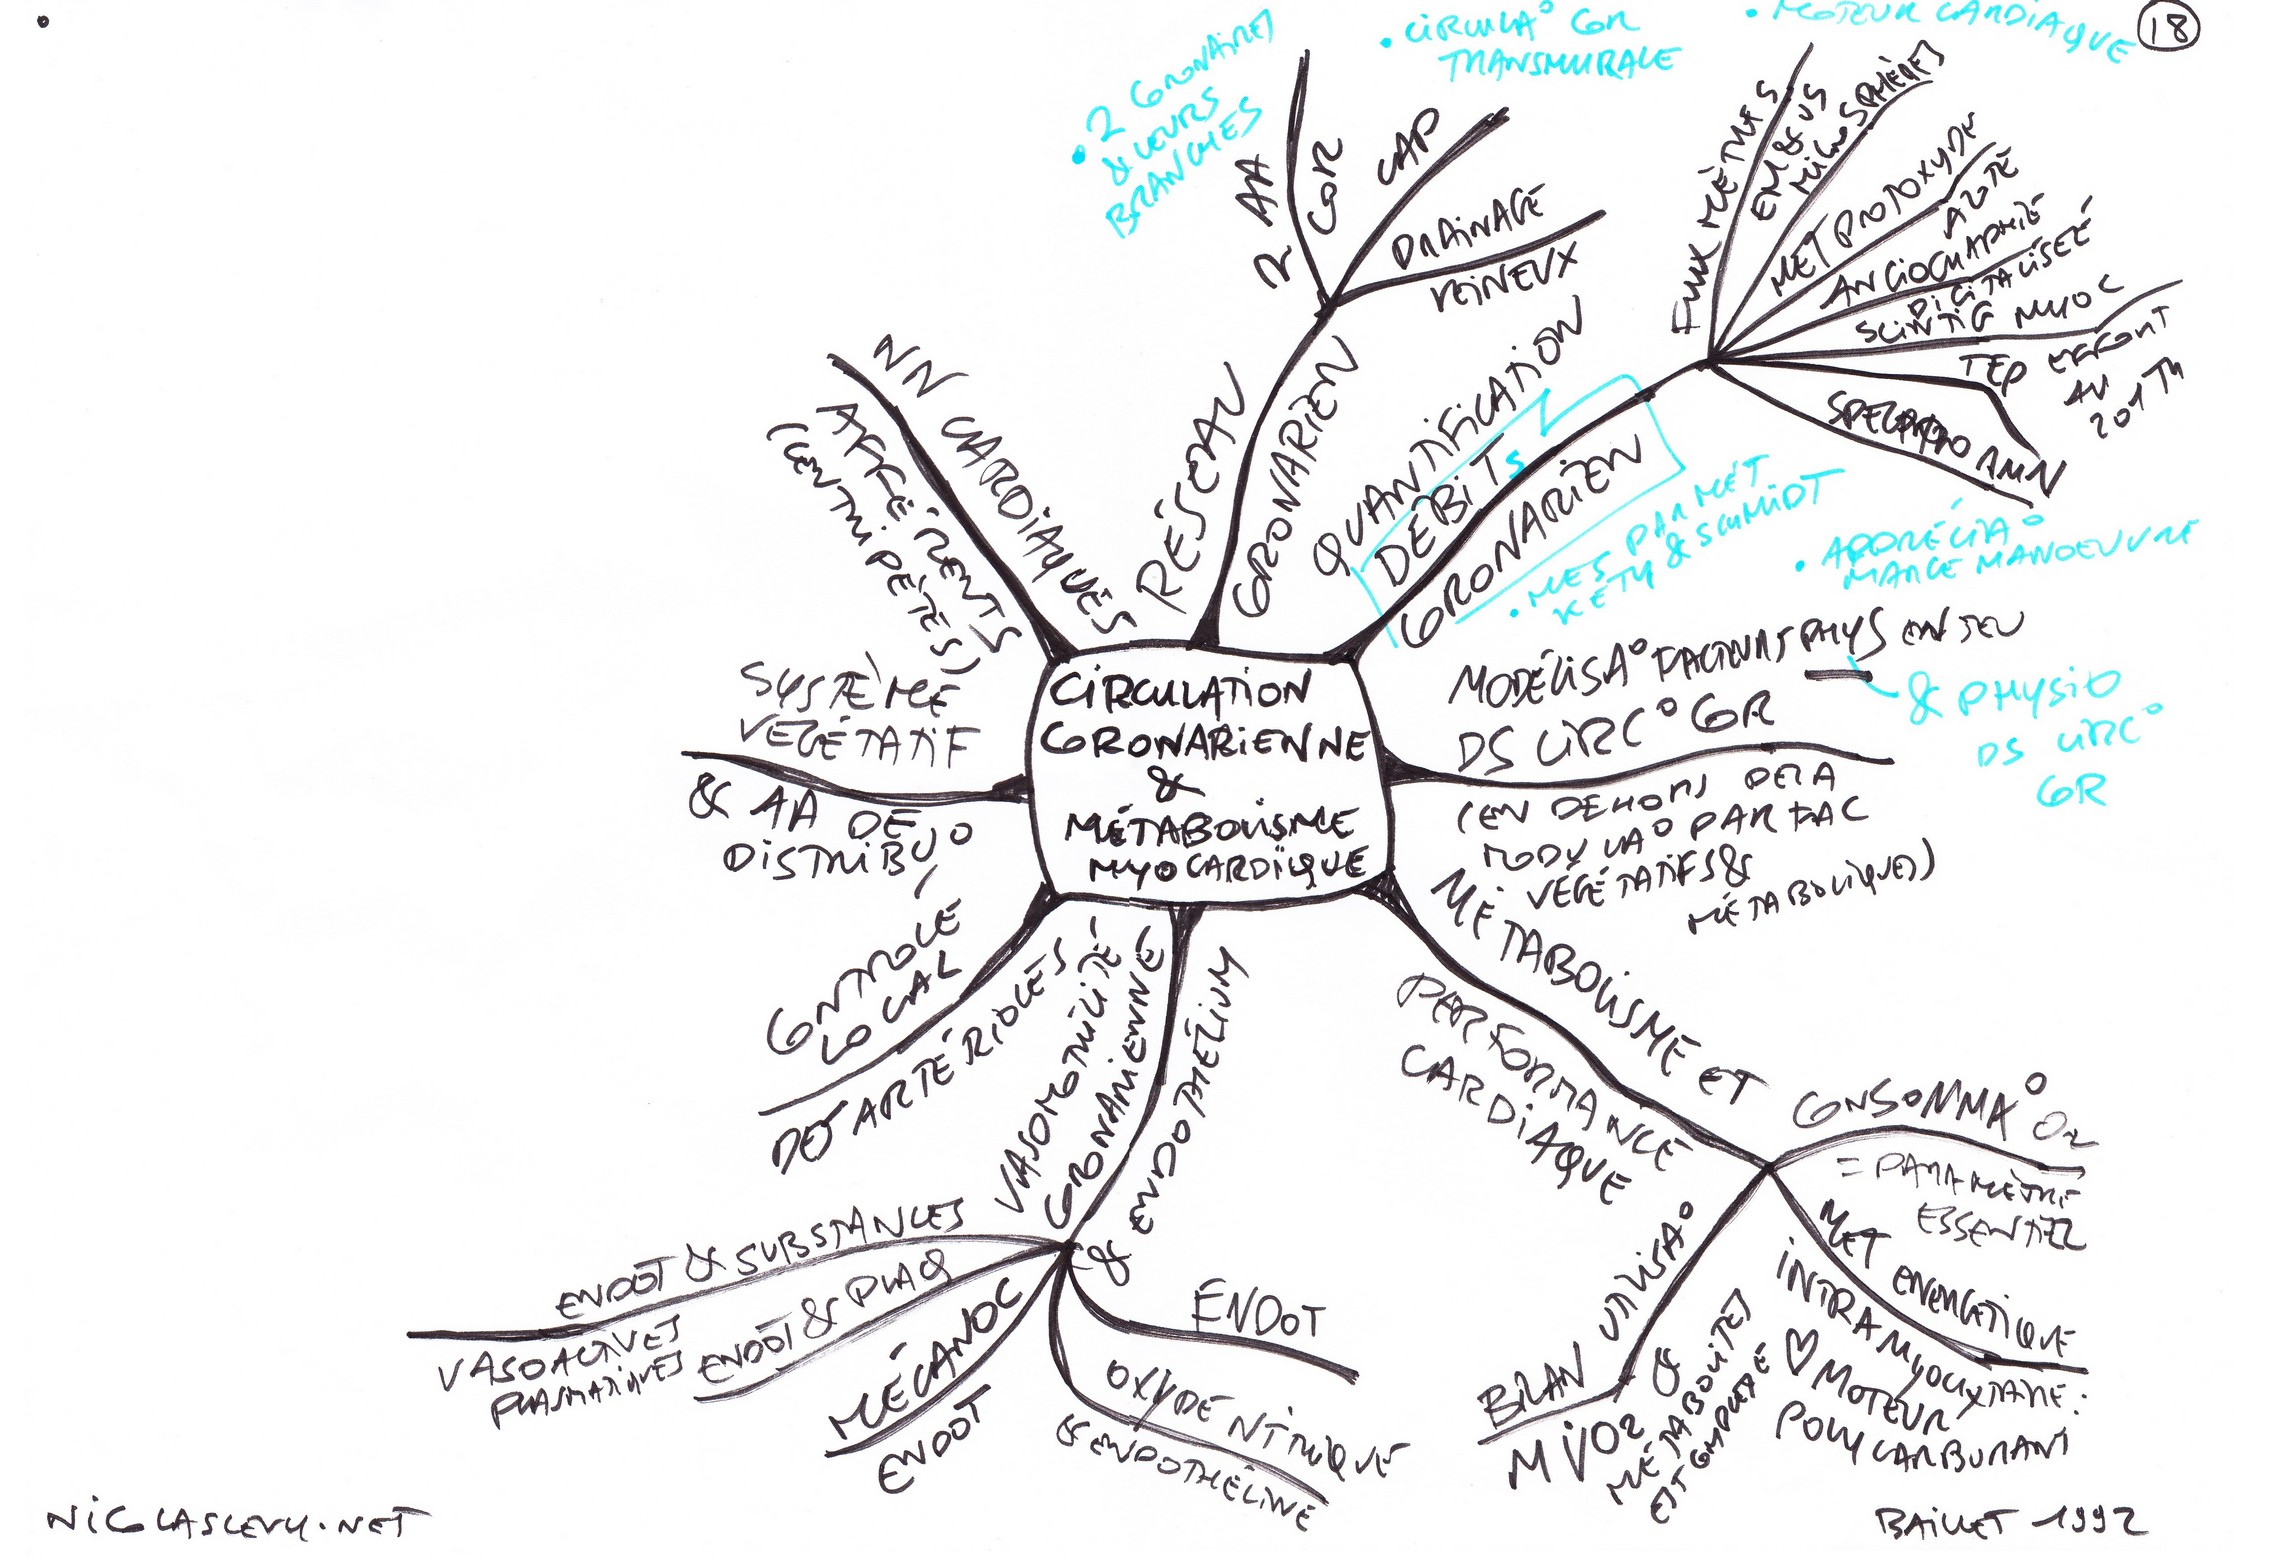 18
• 2 CORONAIRES
& LEURS
BRANCHES
• CIRCULA° COR
TRANSMURALE
• MOTEUR CARDIAQUE
2 AA
COR
CAP
DRAINAGE
VEINEUX
RÉSEAU
CORONARIEN
QUANTIFICATION
DÉBITS
CORONARIEN
• MES PAR MET
KETY & SCHMIDT
FLUX MÈTRES
EM & US
MICROSPHÈRES
MET PROTOXYDE
AZOTE
ANGIOGRAPHIE
DIGITALISÉE
SCINTIG MYOC
EFFORT
AU
201 TH
TEP
SPECTRO RMN
• APPRÉCIA°
MARGE MANOEUVRE
MODÉLISA° FACTEURS PHYS EN JEU
DS CIRC° COR
(EN DEHORS DE LA
MODULA° PAR FAC
VÉGÉTATIFS &
MÉTABOLIQUES)
& PHYSIO
DS CIRC°
COR
NN CARDIAQUES
AFFÉRENTS
(CENTRIPÈTES)
SYSTÈME
VÉGÉTATIF
& AA DE
DISTRIBU°
CIRCULATION
CORONARIENNE
&
MÉTABOLISME
MYOCARDIQUE
CONTROLE
LOCAL
DES ARTÉRIOLES
VASOMOTRICITÉ
CORONARIENNE
& ENDOTHÉLIUM
ENDOT & SUBSTANCES
VASOACTIVES
PLASMATIQUES
ENDOT & PLAQ
MÉCANOC
ENDOT
ENDOT
OXYDE NITRIQUE
& ENDOTHÉLINE
MÉTABOLISME ET
PERFORMANCE
CARDIAQUE
CONSOMMA° O2
= PARAMÈTRE
ESSENTIEL
MET ENERGÉTIQUE
INTRAMYOCYTAIRE :
♡ MOTEUR
POLYCARBURANT
BILAN UTILISA°
MVO2 &
MÉTABOLITES
EST COMPLEXE
NICOLASLEVY.NET
BAILLET 1992